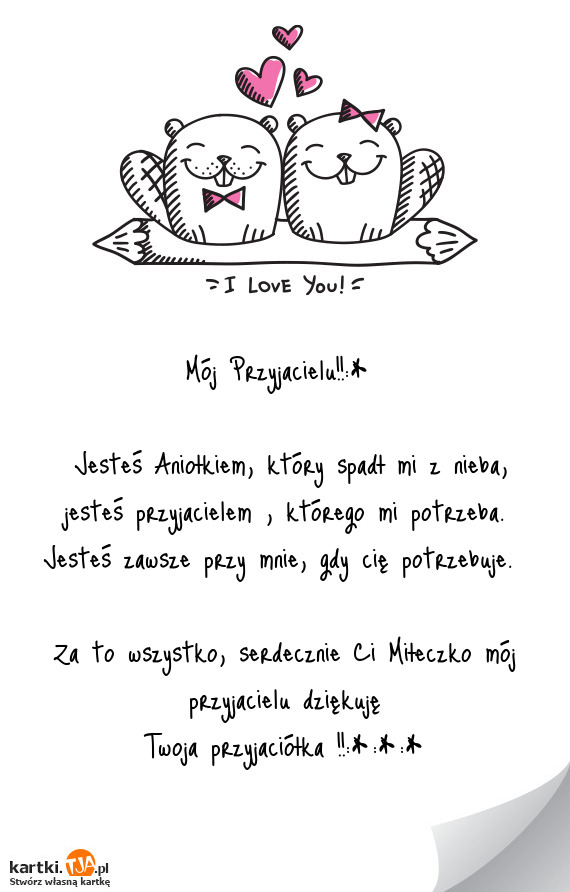 I LOVE YOU!
Mój Przyjacielu!!:*
Jesteś Aniołkiem, który spadł mi z nieba,
jesteś przyjacielem , którego mi potrzeba.
Jesteś zawsze przy mnie, gdy cię potrzebuje.
Za to wszystko, serdecznie Ci Miłeczko mój
przyjacielu dziękuję
Twoja przyjaciółka !!:* :* :*
kartki.TJA.pl
Stwórz własną kartkę